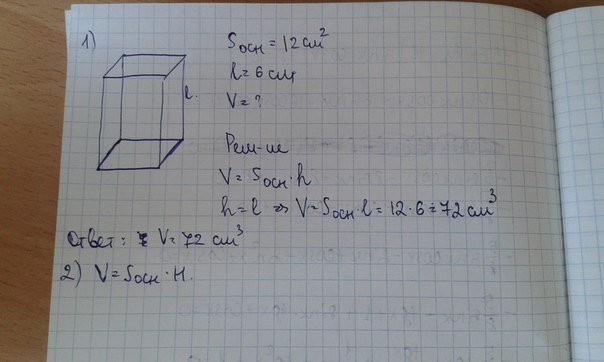 1)
Sосн = 12 см²
l = 6 см
V = ?
l.
Реш-ие
V = Sосн · h
h = l => V = Sосн · l = 12 · 6 = 72 см³
Ответ: V = 72 см³
2) V = Sосн · H.